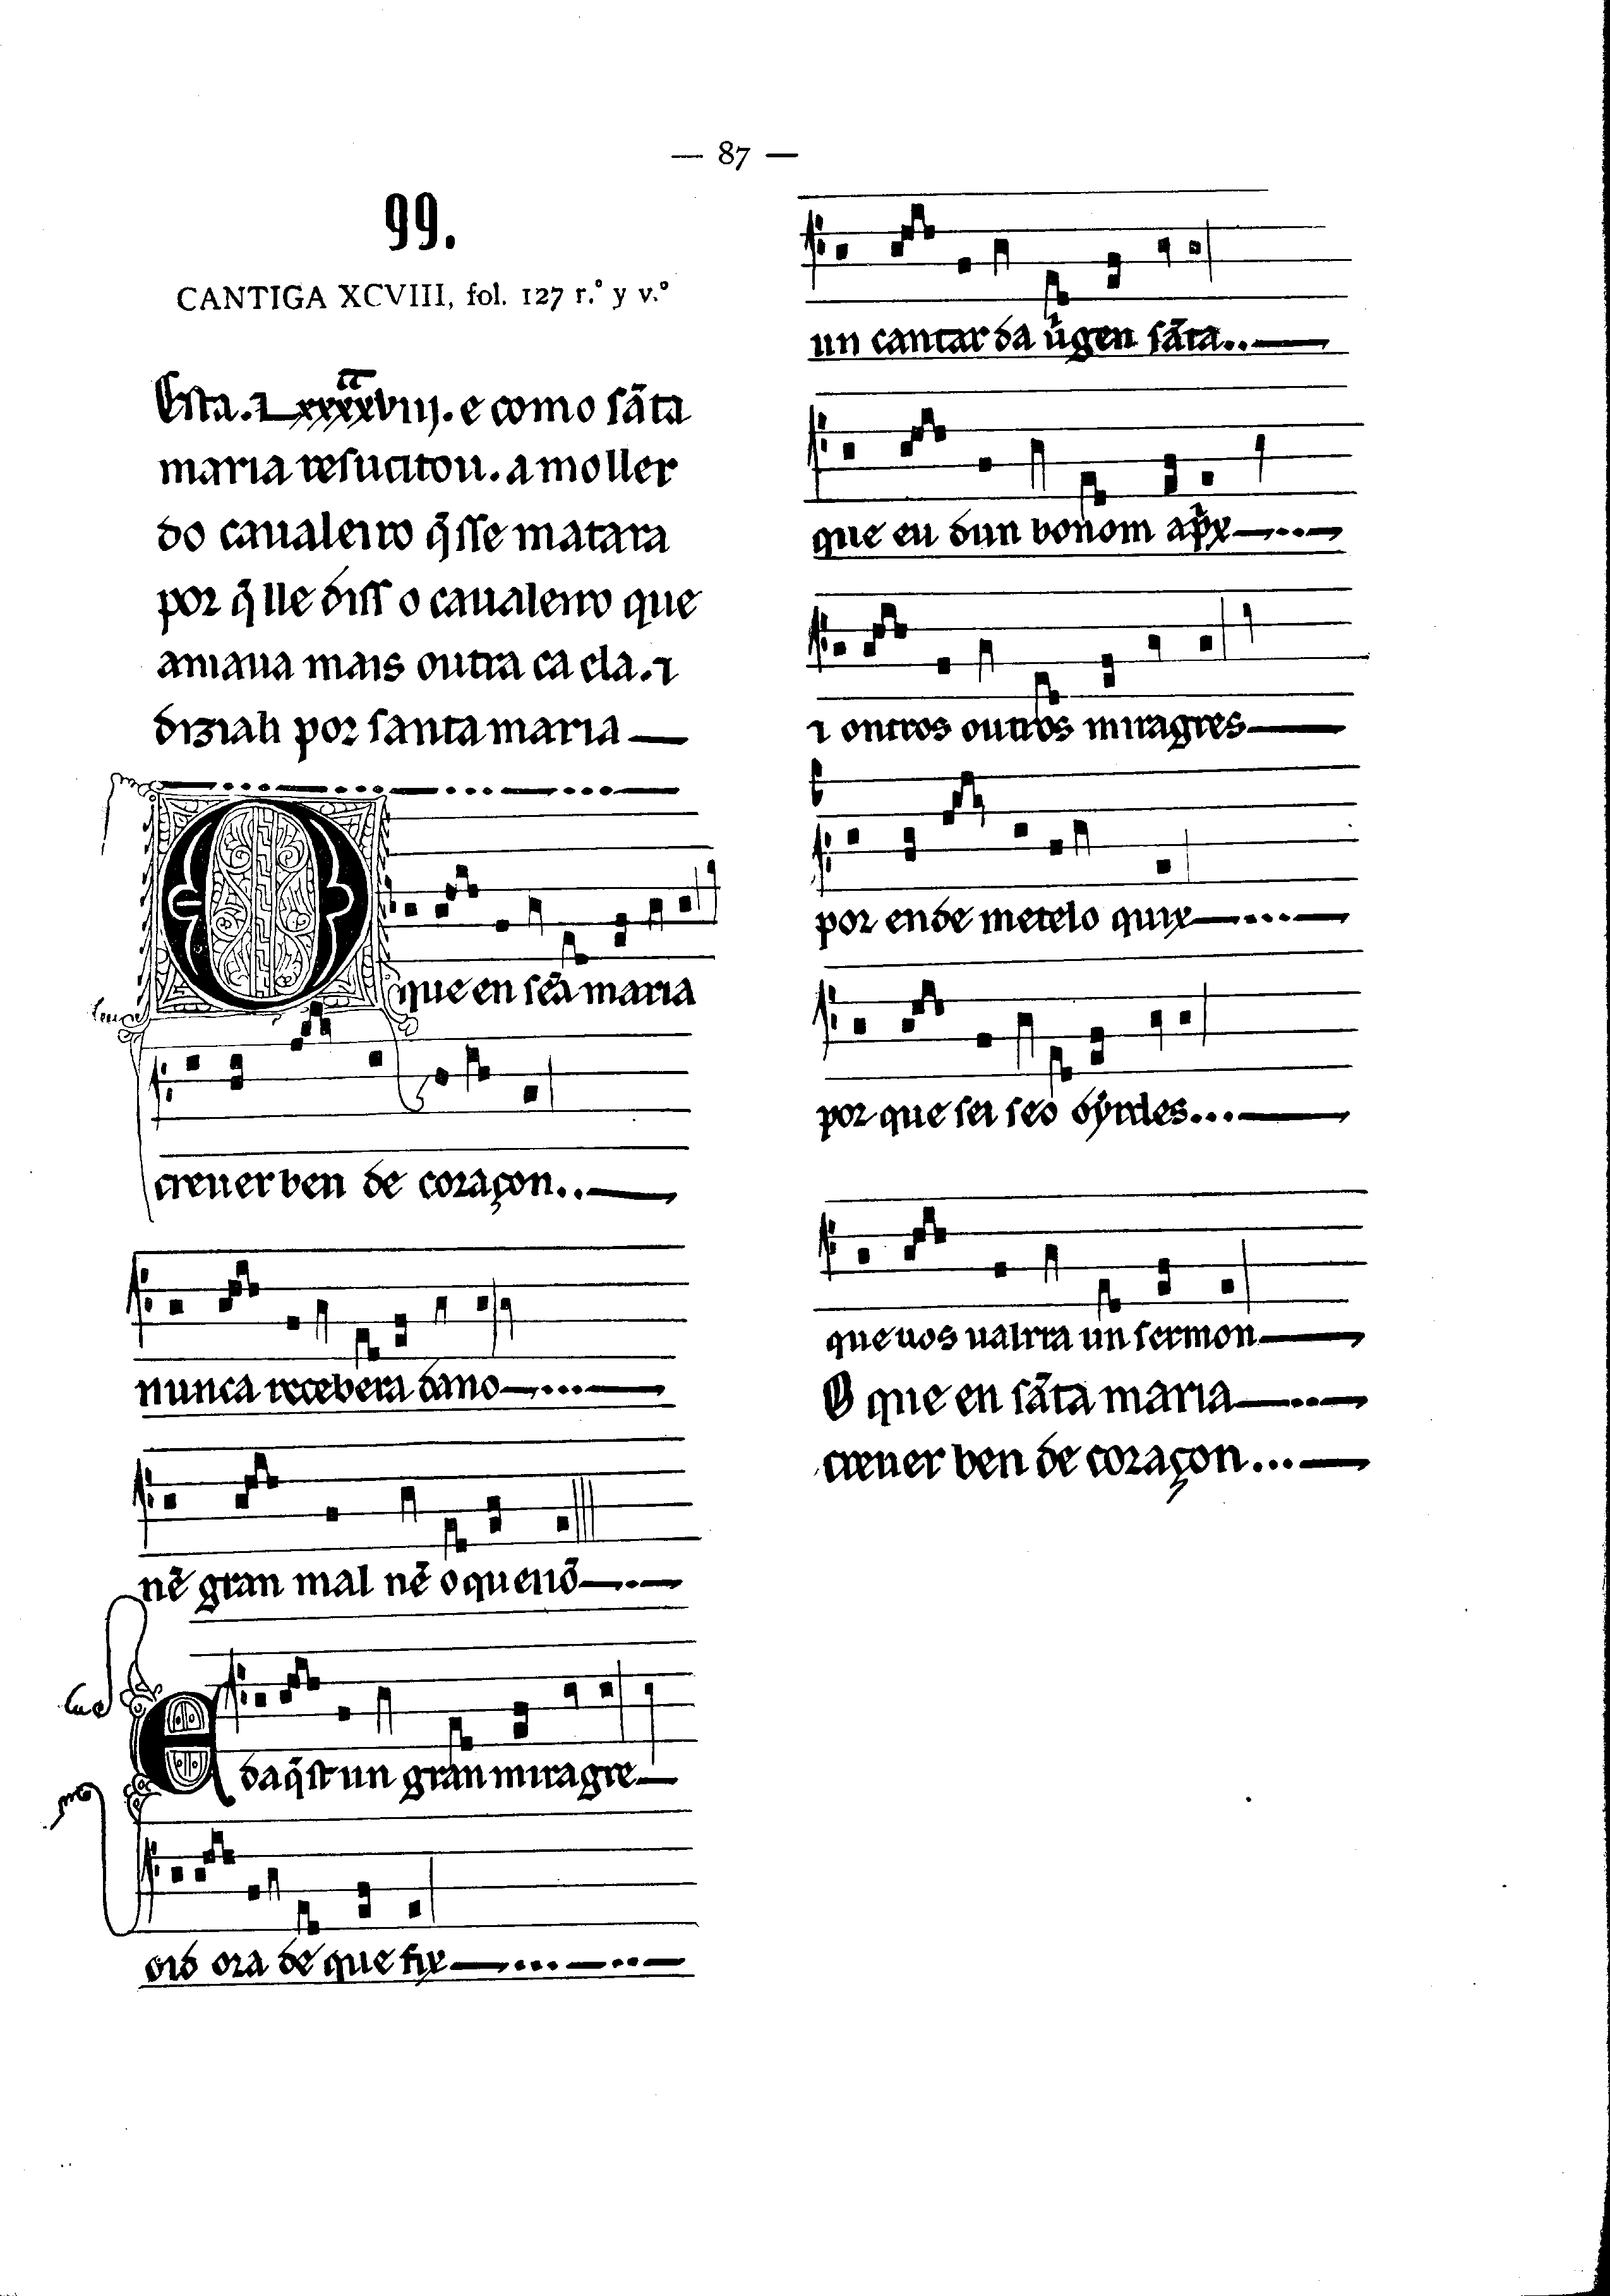 — 87 —
99.
CANTIGA XCVIII, fol. 127 r.º y v.º
Esta. ⁊ Lxxxxviij. e como sãta
maria resucitou. a moller
do caualeiro q̃sse matara
por q̃ lle diss o caualeiro que
amaua mais outra ca ela. ⁊
diziall por santa maria
O que en sc̃a maria
creuer ben de coraçon..
nunca recebera dano
nẽ gran mal nẽ oquenõ
E daq̃st un gran miragre
oid ora de que fix
un cantar da u̇gen sãta..
que eu dun bonom ap̃x
⁊ ontros outros miragres
por ende metelo quix
por que sei seo oyrdes...
que uos ualrra un sermon
O que en sãta maria
creuer ben de coraçon...